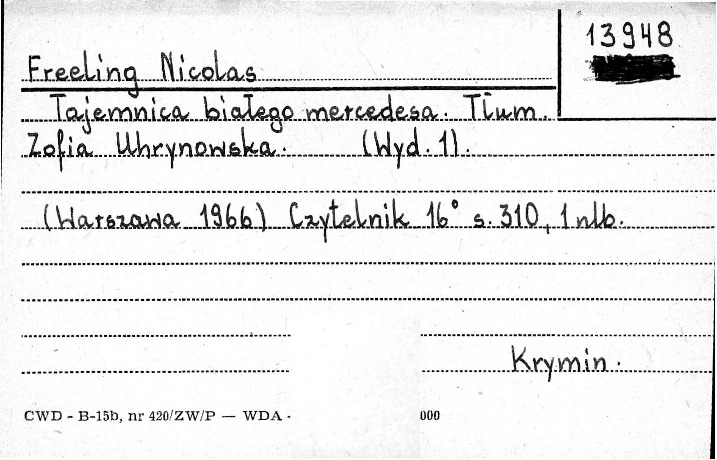 13948
Freeling Nicolas
Tajemnica białego mercedesa. Tłum.
Zofia Uhrynowska. (Wyd. 1).
(Warszawa 1966) Czytelnik 16° s. 310, 1 nlb.
Krymin.
CWD - B-15b, nr 420/ZW/P — WDA - 000